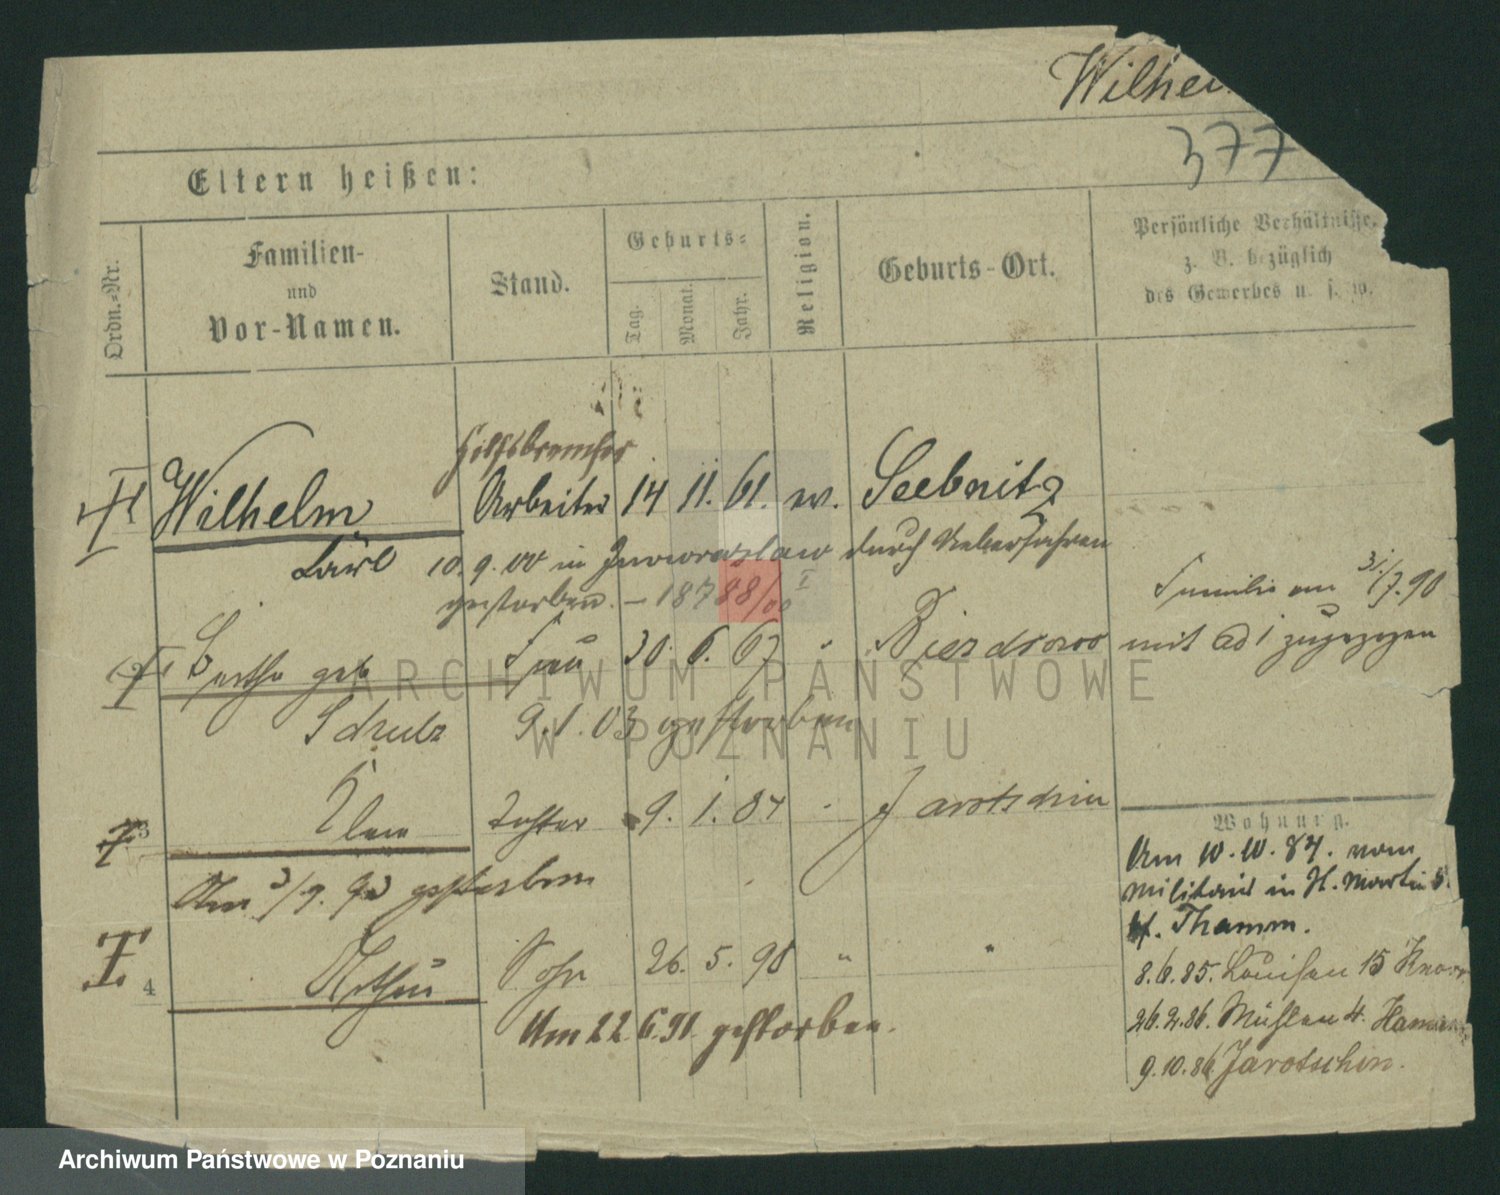 Wilhel
377
Eltern heißen:
Ordn.=Nr.
Familien-
und
Vor-Namen.
Stand.
Geburts=
Tag.
Monat.
Jahr.
Religion.
Geburts-Ort.
Persönliche Verhältnisse,
z. B. bezüglich
des Gewerbes u. s. w.
Hilfsbremser
Wilhelm Arbeiter 14 11. 61. ev. Seebnitz
Carl 10. 9. 00 in Inowrazlaw durch Ueberfahren
gestorben. – 18788/00 I
Familie am 31./7. 90
2 Bertha geb Frau 30. 6. 67 " Biezdrowo mit ad 1 zugezogen
Schulz 9. 1. 03 gestorben
3 Tochter 9. 1. 87 " Jarotschin
Am 3/9. 90 gestorben
4 Arthur Sohn 26. 5. 90 " "
Am 22. 6. 91. gestorben.
Wohnung.
Am 10. 10. 84. vom
Militair in H. Martin 5.
bf. Thamm.
8. 6. 85. Louisen 15 Knorr
26. 2. 86. Mühlen 4.
9. 10. 86 Jarotschin.
ARCHIWUM PAŃSTWOWE
W POZNANIU
Archiwum Państwowe w Poznaniu